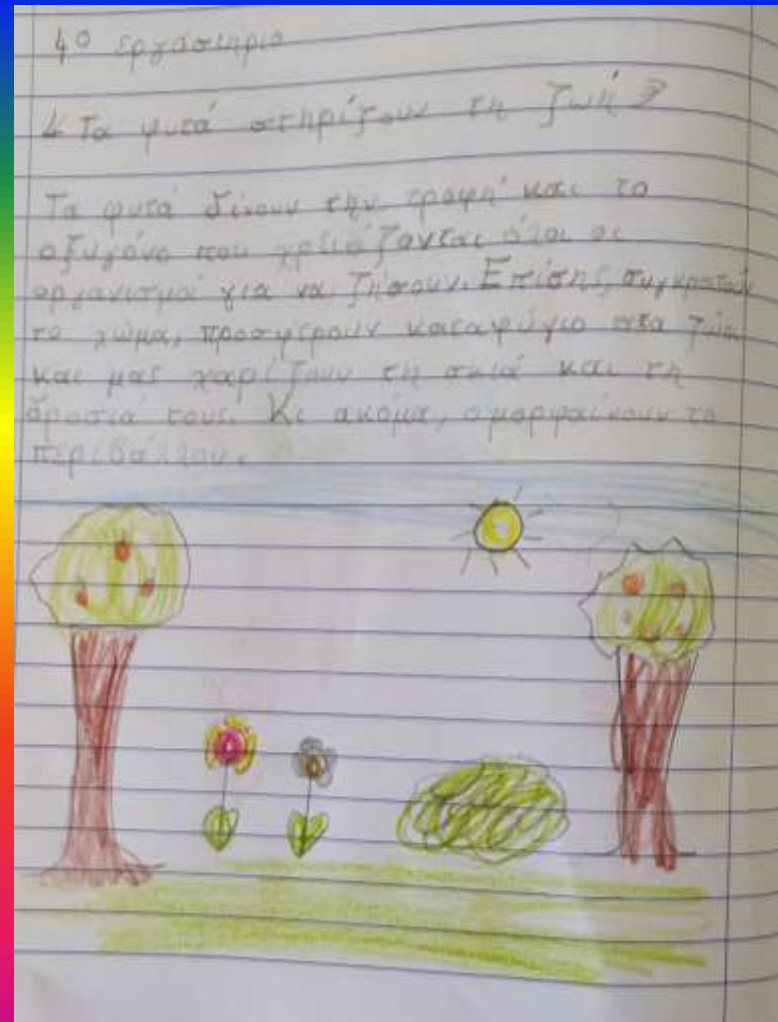 4º εργαστήριο
« Τα φυτά στηρίζουν τη ζωή »
Τα φυτά δίνουν την τροφή και το
οξυγόνο που χρειάζονται όλοι οι
οργανισμοί για να ζήσουν. Επίσης, συγκρατούν
το χώμα, προσφέρουν καταφύγιο στα ζώα
και μας χαρίζουν τη σκιά και τη
δροσιά τους. Κι ακόμα, ομορφαίνουν το
περιβάλλον.